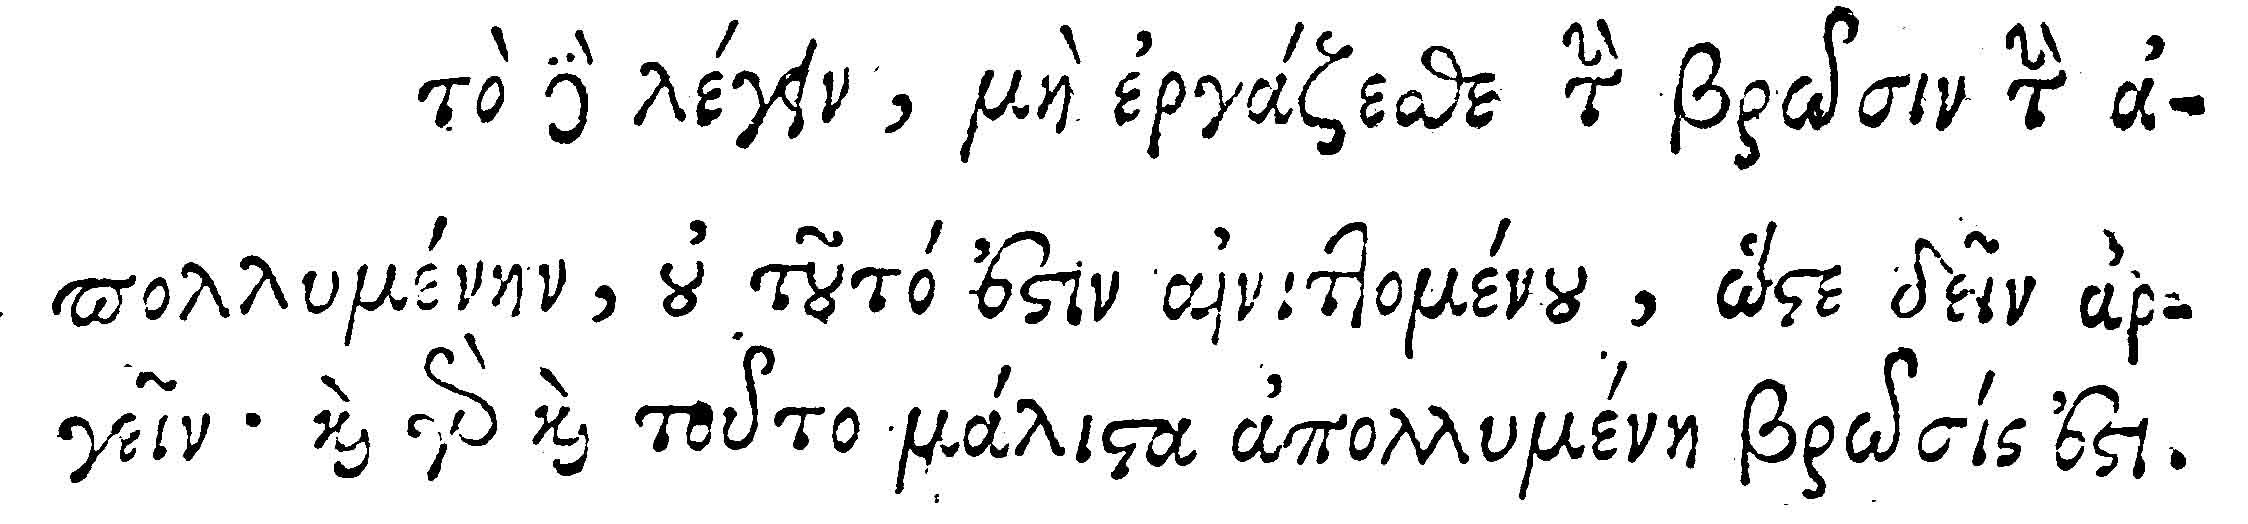 τὸ ϳ̈ὸ λέγειν, μὴ ἐργάζεσθε τὴν βρῶσιν τὴν ἀ-
πολλυμένην, ȣ̓ τȣ͂τό ἐϛιν αἰνιττομένȣ, ὥϛε δεῖν ἀρ-
γεῖν· ϗ̀ γὸ ϗ̀ τοῦτο μάλιϛα ἀπολλυμένη βρῶσίς ἐϛι.